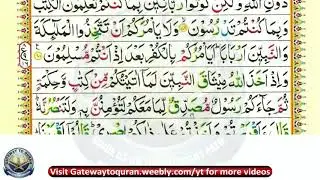 دُوْنِ اللّٰهِ وَلٰكِنْ كُوْنُوْا رَبّٰنِيّٖنَ بِمَا كُنْتُمْ تُعَلِّمُوْنَ الْكِتٰبَ
وَبِمَا كُنْتُمْ تَدْرُسُوْنَ وَلَا يَاْمُرَكُمْ اَنْ تَتَّخِذُوا الْمَلٰٓئِكَةَ
وَالنَّبِيّٖنَ اَرْبَابًا اَيَاْمُرُكُمْ بِالْكُفْرِ بَعْدَ اِذْ اَنْتُمْ مُّسْلِمُوْنَ
وَاِذْ اَخَذَ اللّٰهُ مِيْثَاقَ النَّبِيّٖنَ لَمَآ اٰتَيْتُكُمْ مِّنْ كِتٰبٍ وَّحِكْمَةٍ
ثُمَّ جَآءَكُمْ رَسُوْلٌ مُّصَدِّقٌ لِّمَا مَعَكُمْ لَتُؤْمِنُنَّ بِهٖ وَلَتَنْصُرُنَّهٗ
Visit Gatewaytoquran.weebly.com/yt for more videos